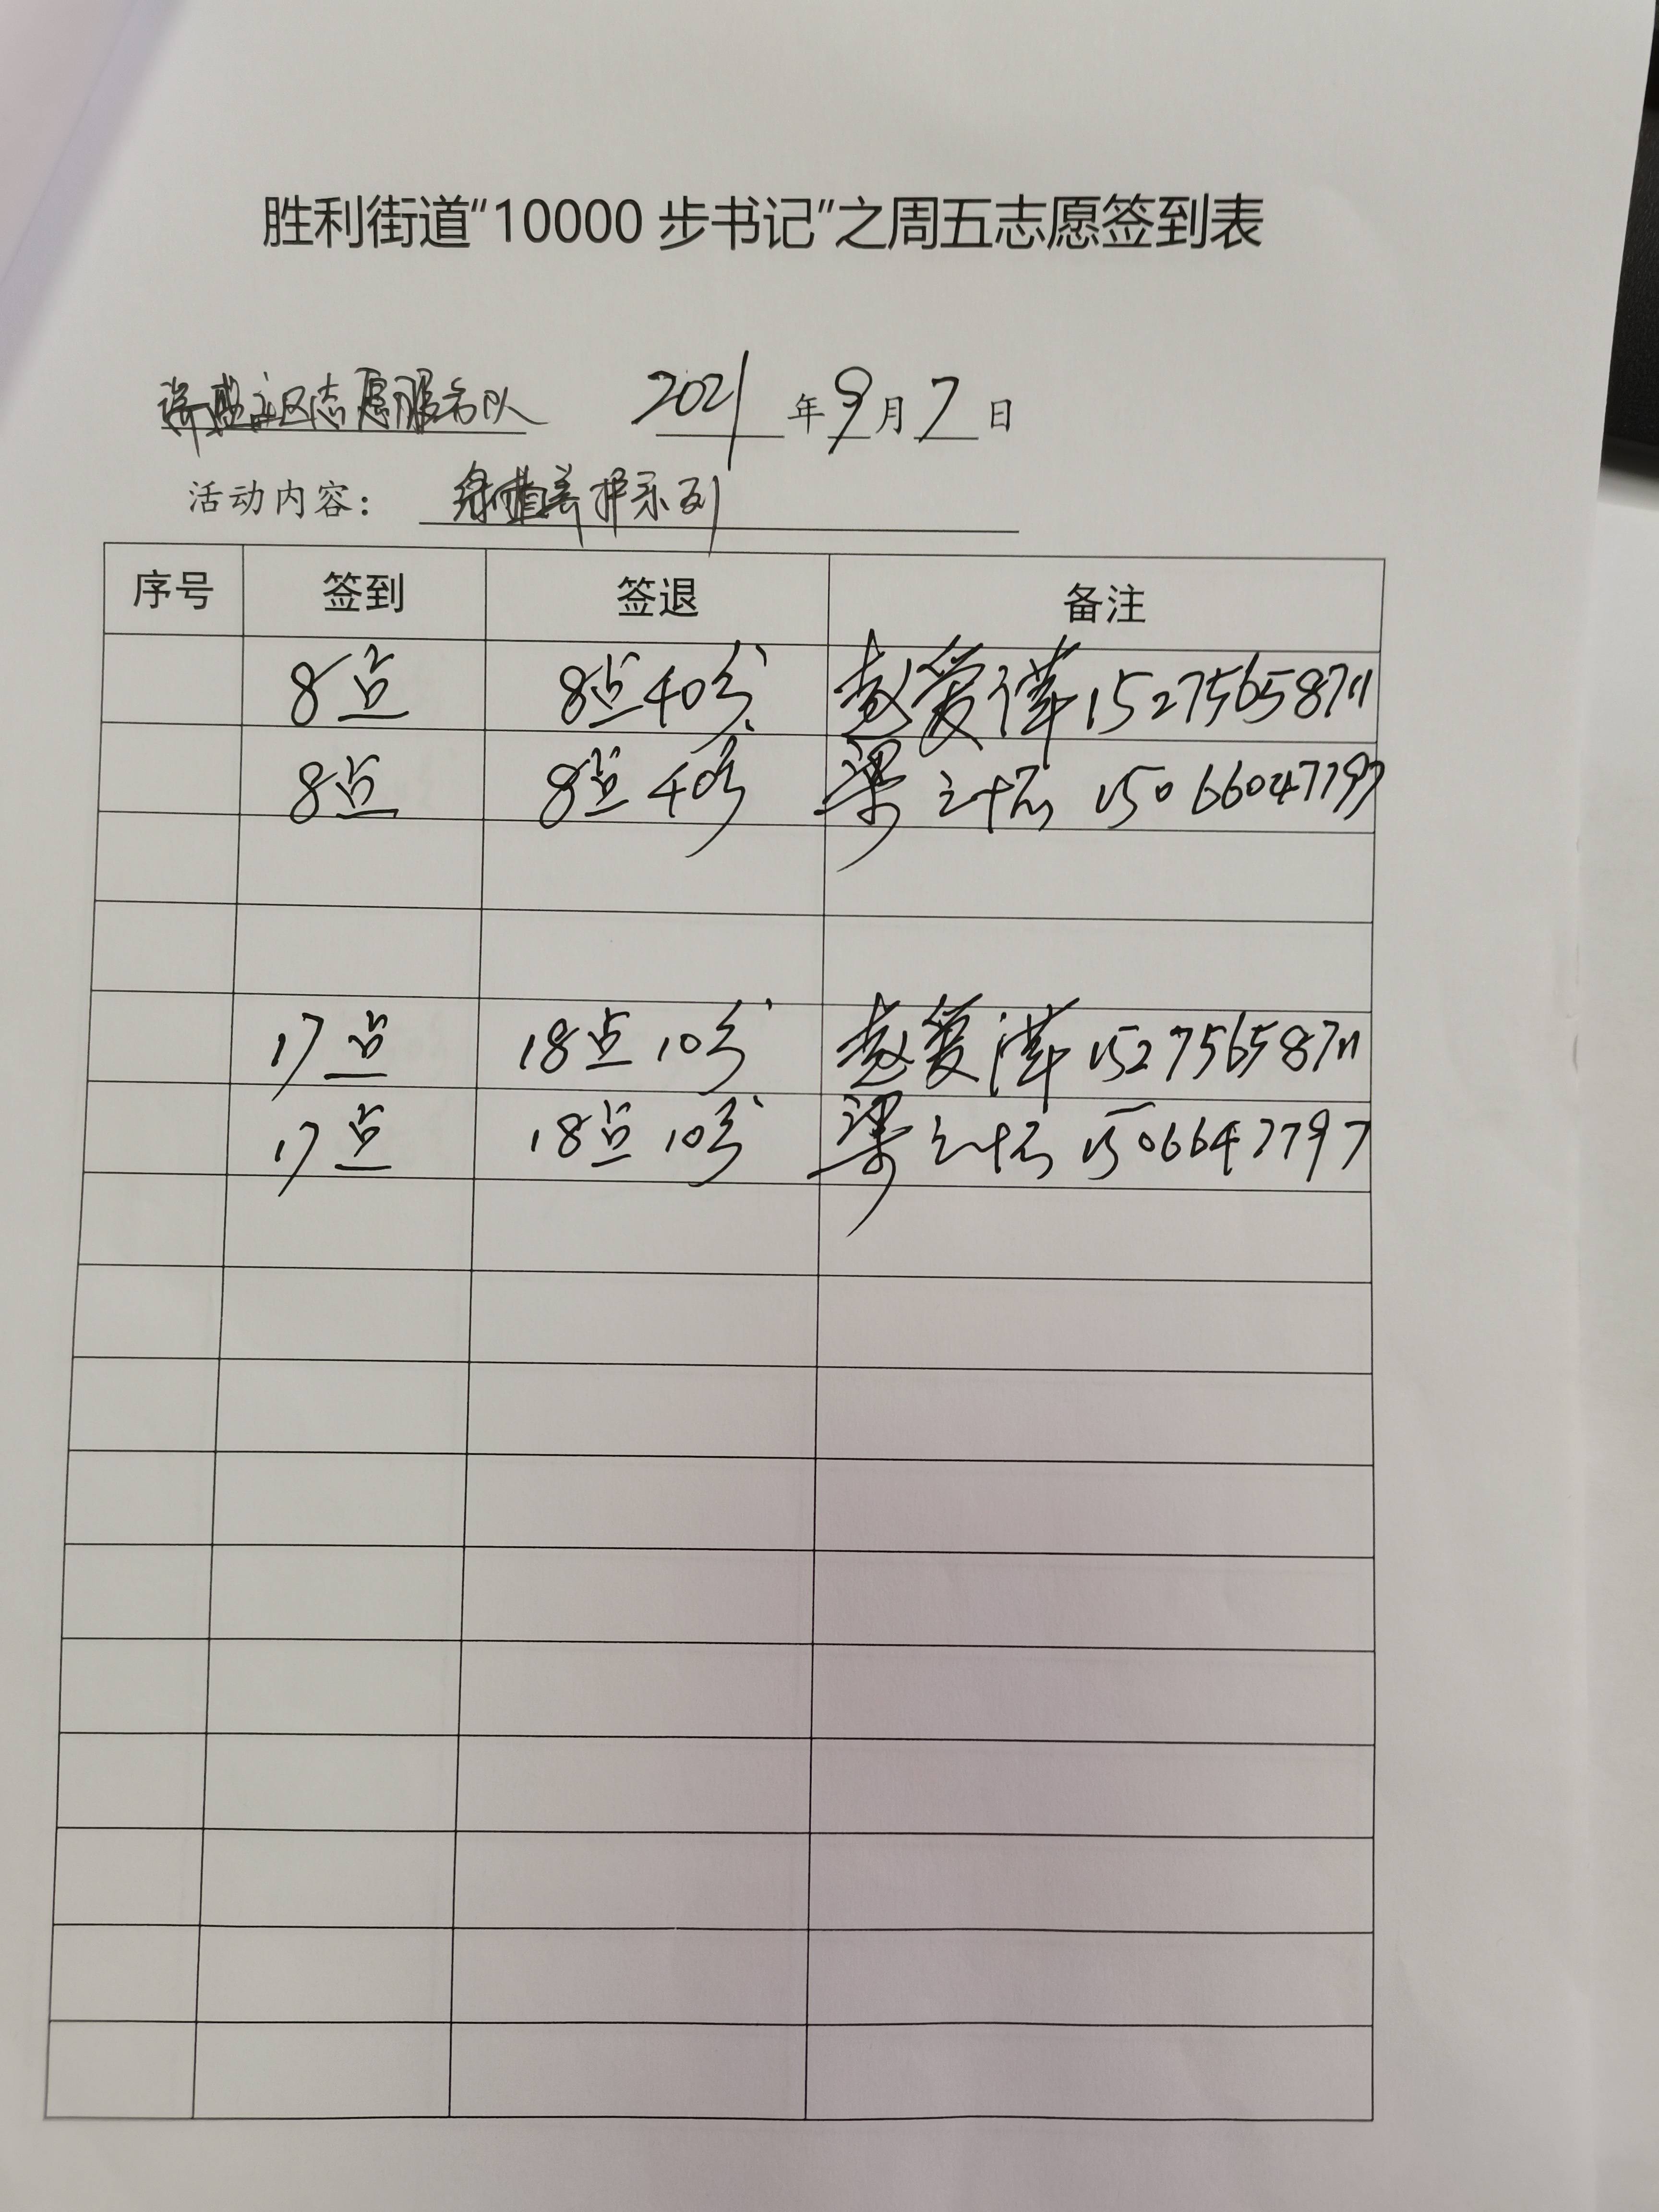 胜利街道“10000 步书记”之周五志愿签到表
社区志愿服务队 2021 年 9 月 7 日
活动内容： 绿植养护系列
序号 签到 签退 备注
8点 8点40分 赵爱 15275658711
8点 8点40分 梁 15066047797
17点 18点10分 赵爱 15275658711
17点 18点10分 梁 1506647797